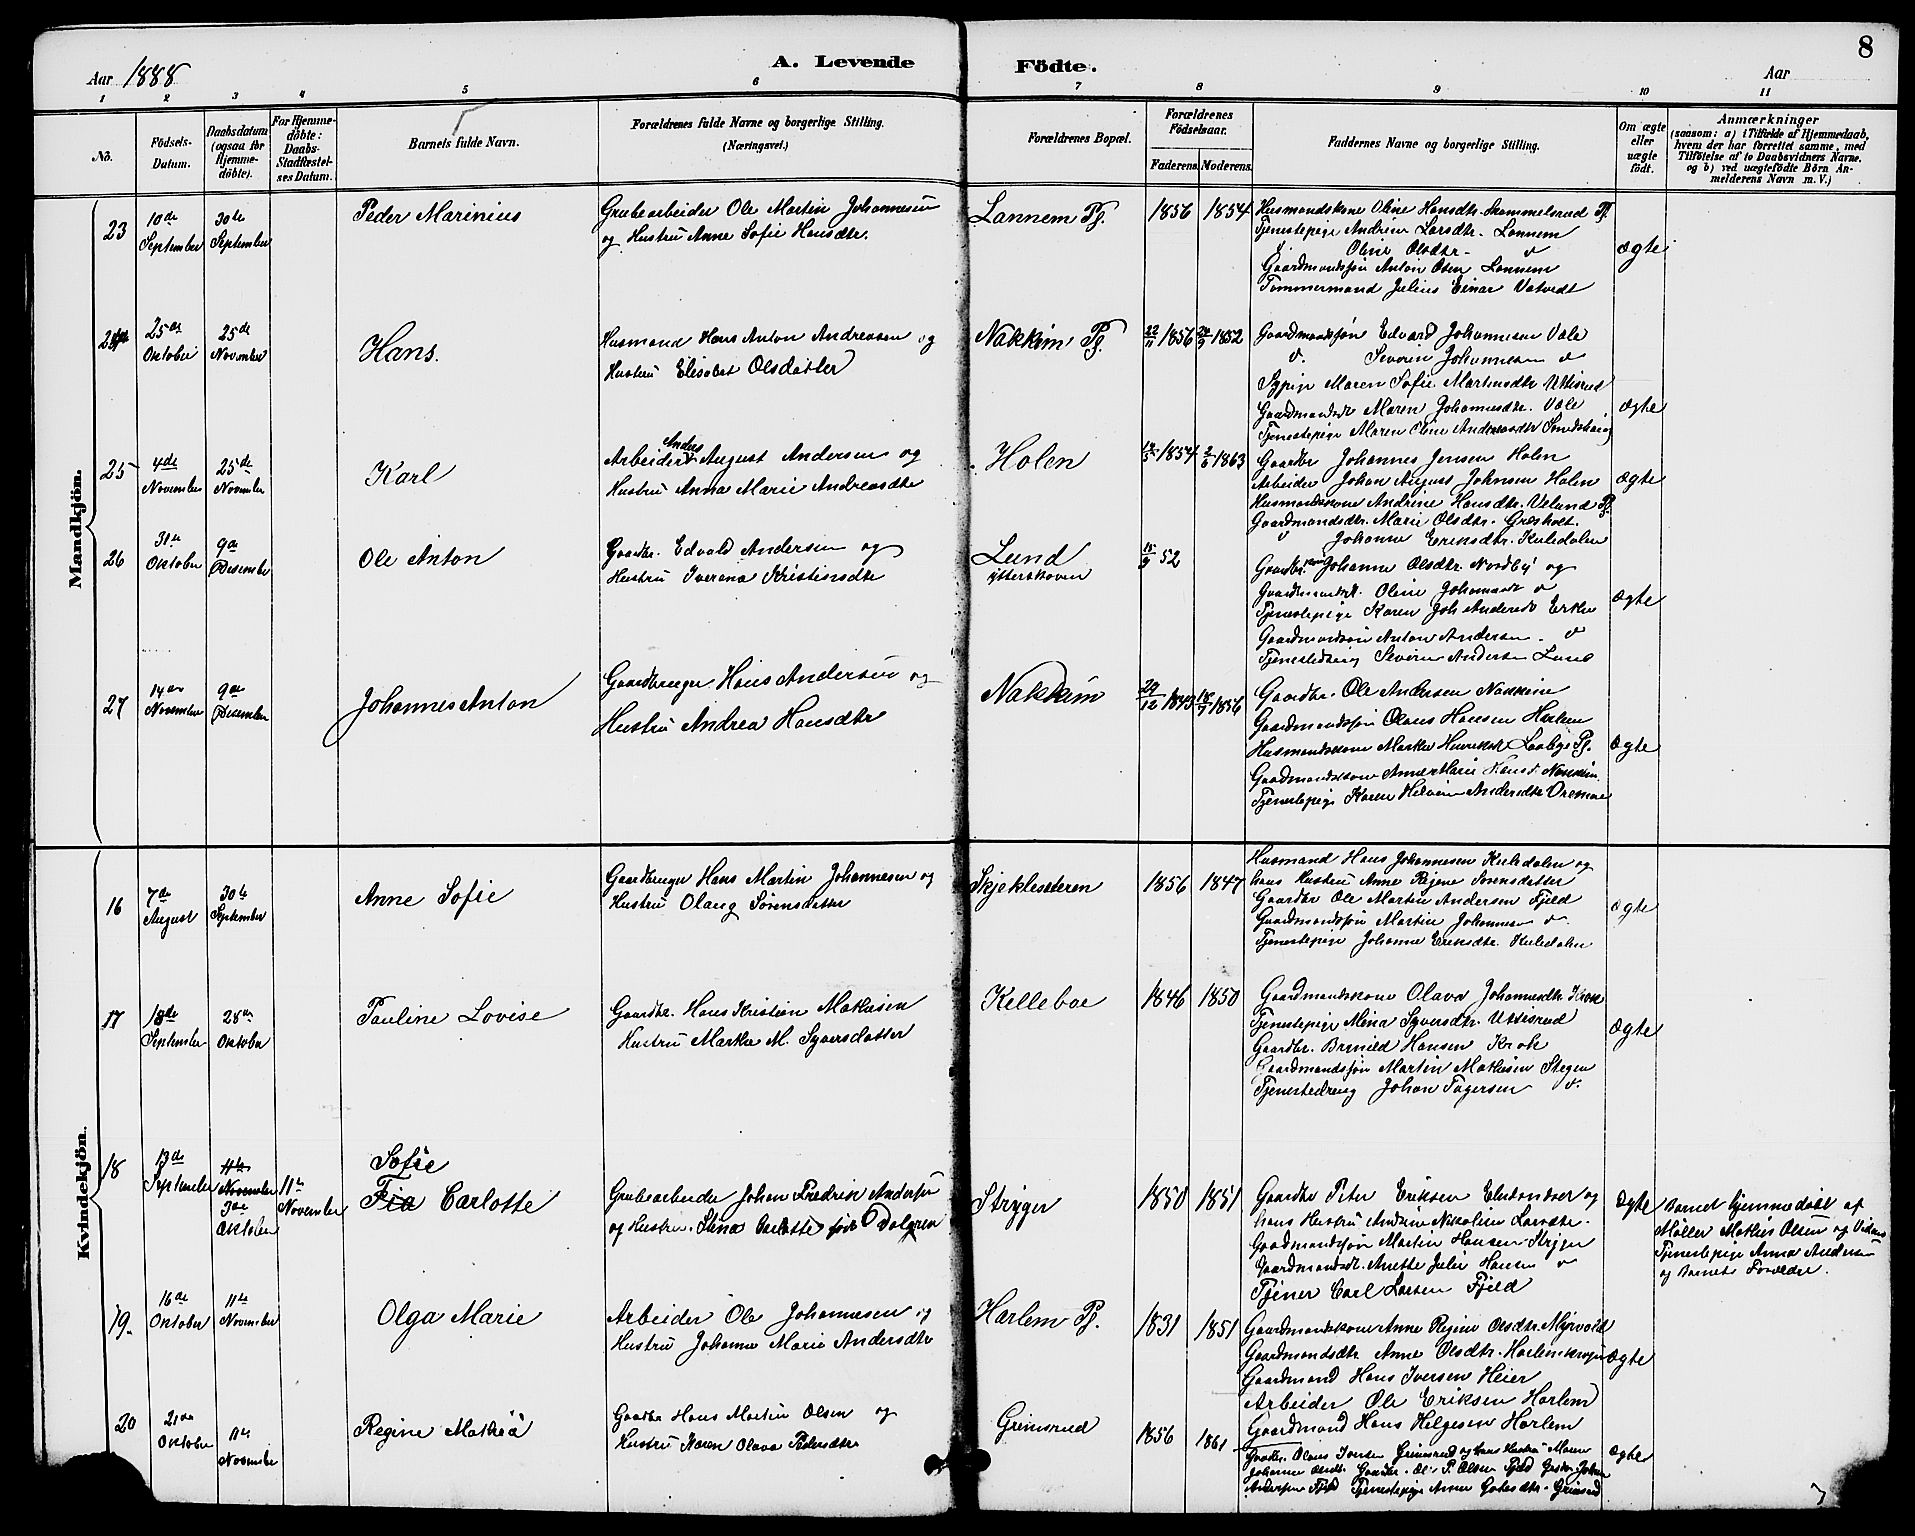 Aar 1888
A. Levende Födte.
8
Aar
1 2 3 4 5 6 7 8 9 10 11
No.
Födsels-Datum.
Daabsdatum (ogsaa for Hjemme-döbte).
For Hjemme-döbte: Daabs-Stadfæstel-ses Datum.
Barnets fulde Navn.
Forældrenes fulde Navne og borgerlige Stilling.
(Næringsvei.)
Forældrenes Bopæl.
Forældrenes Födselsaar.
Faderens. Moderens.
Faddernes Navne og borgerlige Stilling.
Om ægte eller uægte födt.
Anmærkninger
(saasom: a) i Tilfælde af Hjemmedaab,
hvem der har forrettet samme, med
Tilföielse af to Daabsvidners Navne.
og b) ved uægtefödte Börn An-
melderens Navn m. V.)
Mandkjön.
23
10de September
30te September
Peder Marinius
Grubearbeider Ole Martin Johannesen
og Hustru Anne Sofie Hansdtr.
Lannem Pg.
1856 1854
Husmandskone Oline Hansdtr. Skammelsrud Pg.
Tjenestepige Andrine Larsdtr. Lannem
Oline Olsdtr.
Gaardmandssøn Anton Olsen Lannem
Tømmermand Julius Einar Vatvedt
ægte
25de Oktober
25de November
Hans.
Husmand Hans Anton Andreassen og
Hustru Elisabet Olsdatter
Nakkim Pg.
22/11 1856 1852
Gaardmandssøn Edvard Johannesen Vale
Severin Johannesen
Sypige Maren Sofie Martinsdtr Uttisrud
Gaardmandsdtr Maren Johannesdtr. Vale
Tjenestepige Maren Oline Andreasdtr
ægte
25
4de November
25de November
Karl
Arbeider Anders August Andersen og
Hustru Anna Marie Andreasdtr
Holen
1854 1863
Gaardbr Johannes Jensen Holen
Arbeider Johan August Johnsen Holen
Husmandskone Andrine Hansdtr. Velund Pg.
Gaardmandsdtr. Marie Olsdtr. Græsholt.
Johanne Eriksdtr. Kuledalen
ægte
26
31te Oktober
9de Desember
Ole Anton
Gaardbr. Edvald Andersen og
Hustru Iverena Kristensdtr
Lund
ytterskoven
15/9 52
Gaardbr.kone Johanne Olsdtr. Nordby og
Gaardmandsdt. Oline Johannesdt
Tjenestepige Karen Joh. Andersdt
Gaardmandssøn Anton Andersen
Tjenestedreng Severin Andersen Lund
ægte
27
14de November
9de Desember
Johannes Anton
Gaardbruger Hans Andersen og
Hustru Andrea Hansdtr
Nakkim
29/12 1843 1856
Gaardbr. Ole Andersen Nakkim
Gaardmandssøn Olaus Hansen Harlem
Husmandskone Marthe Henriksdt Pg.
Gaardmandskone Anne Marie Hansd Nakkim
Tjenestepige Karen Andersdtr
ægte
Kvindekjön.
16
7de August
30te September
Anne Sofie
Gaardbruger Hans Martin Johannesen og
Hustru Olaug Sørensdatter
Skjekleseteren
1856 1847
Husmand Hans Johannesen Kuledalen og
hans Hustru Anne Regine Sørensdatter
Gaardbr Ole Martin Andersen Fjeld
Gaardmandssøn Martin Johannesen
Tjenestepige Johanne Eriksdtr. Kuledalen
ægte
17
18de September
28de Oktober
Pauline Lovise
Gaardbr. Hans Kristian Mathisen
Hustru Marthe M. Syversdatter
Kelleboe
1846 1850
Gaardmandskone Olava Johannesdtr Krok
Tjenestepige Mina Syversdtr. Uttisrud
Gaardbr. Brynild Hansen Krok
Gaardmandssøn Martin Mathisen Stegen
Tjenestedreng Johan Fagersen
ægte
18
13de September
11te November
7de Oktober
11te November
Sofie
Fia Carlotte
Grubearbeider Johan Fredrik Andersen
og Hustru Stina Carlotte født Dalgren
Stryger
1850 1851
Gaardbr Peter Eriksen og
hans Hustru Andrine Nikoline Larsdtr.
Gaardmandssøn Martin Hansen Stryger
Gaardmandsdt. Anette Julie Hansen
Tjener Carl Larsen Fjeld
ægte
Barnet hjemmedøbt af
Møller Mathis Olsen og
Tjenestepige Anna Andersen
og Barnets Forældre.
19.
16de Oktober
11te November
Olga Marie
Arbeider Ole Johannesen og
Hustru Johanne Marie Andersdtr
Harlem Pg.
1831 1851
Gaardmandskone Anne Regine Olsdtr. Myrvold
Gaardmandsdtr Anne Olsdtr.
Gaardmand Hans Iversen Heier
Arbeider Ole Eriksen Harlem
Gaardmand Hans Helgesen Harlem
ægte
20
21de Oktober
11te November
Regine Mathea
Gaardbr Hans Martin Olsen og
Hustru Karen Olava Pedersdtr
Grimsrud
1856 1861
Gaardbr. Olaus Iversen Grimsrud og hans Hustru Maren
Johanne Olsdt. Gaardbr. Ole P. Olsen Fjeld Johan
Andersen Fjeld Tjenestepige Anne Grimsrud
ægte